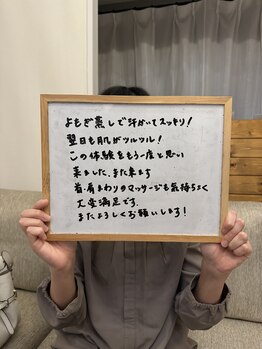 よもぎ蒸しで汗かいてスッキリ!
翌日も肌がツルツル!
この体験をもう一度と思い
来ました。また来ます
首・肩まわりのマッサージも気持ちよく
大変満足です。
またよろしくお願いします!